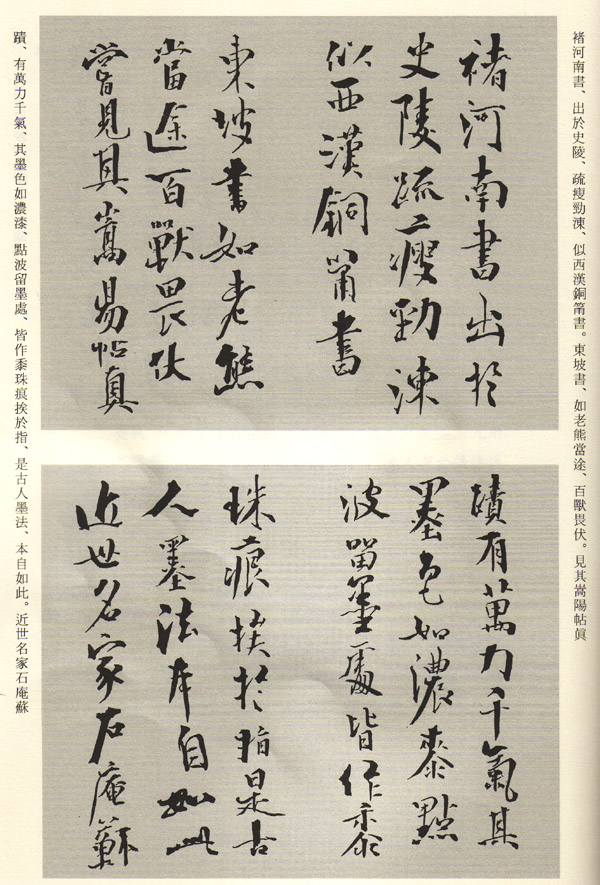 褚河南書、出於史陵、疏瘦勁涷、似西漢銅筩書。東坡書、如老熊當途、百獸畏伏。見其嵩陽帖眞
褚河南書出於
史陵疏瘦勁涷
似西漢銅筩書
東坡書如老熊
當途百獸畏伏
嘗見其嵩昜帖真
蹟有萬力千氣其
墨色如濃桼點
波留墨處皆作黍
珠痕挨於指是古
人墨法本自如此
近世名家石庵蘇
蹟、有萬力千氣、其墨色如濃漆、點波留墨處、皆作黍珠痕挨於指、是古人墨法、本自如此。近世名家石庵蘇